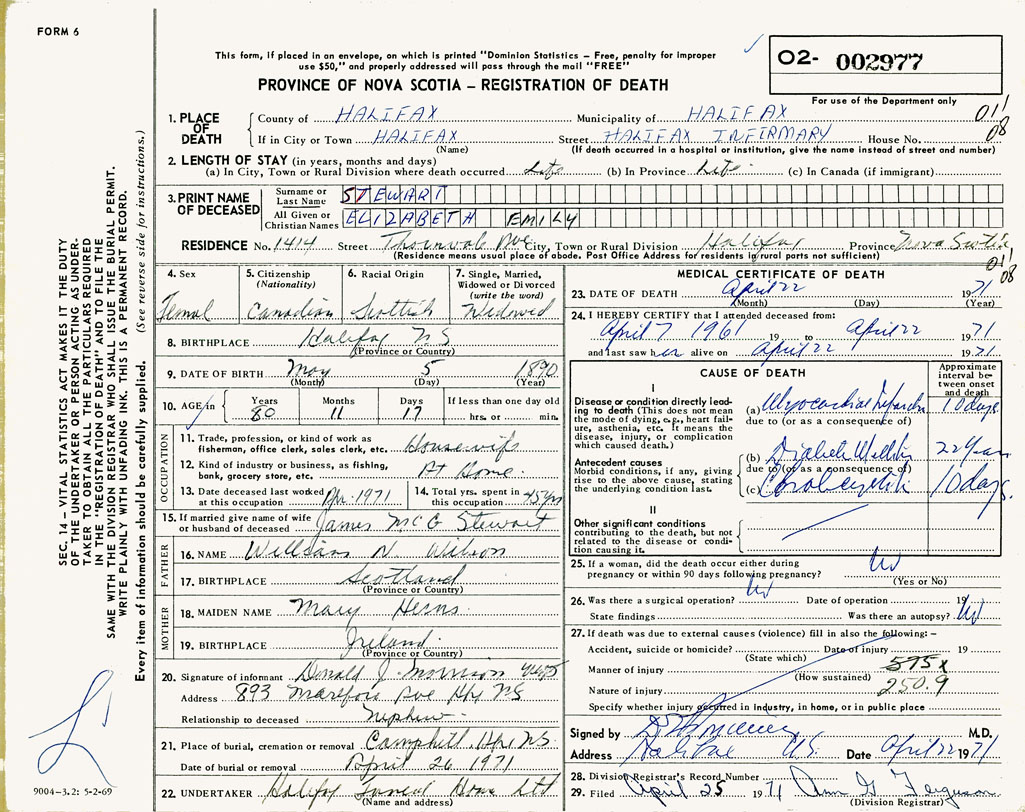 FORM 6
This form, if placed in an envelope, on which is printed "Dominion Statistics — Free, penalty for improper
use $50," and properly addressed will pass through the mail "FREE"
O2- 002977
PROVINCE OF NOVA SCOTIA — REGISTRATION OF DEATH
For use of the Department only
011
08
1. PLACE OF DEATH
County of HALIFAX Municipality of HALIFAX
If in City or Town HALIFAX Street HALIFAX INFIRMARY House No.
(Name) (If death occurred in a hospital or institution, give the name instead of street and number)
2. LENGTH OF STAY (in years, months and days)
(a) In City, Town or Rural Division where death occurred Life (b) In Province Life (c) In Canada (if immigrant)
3. PRINT NAME OF DECEASED
Surname or Last Name STEWART
All Given or Christian Names ELIZABETH EMILY
RESIDENCE No. 1414 Street Thornvale Ave City, Town or Rural Division Halifax Province Nova Scotia
(Residence means usual place of abode. Post Office Address for residents in rural parts not sufficient)
011
08
4. Sex Femal
5. Citizenship (Nationality) Canadian
6. Racial Origin Scottish
7. Single, Married, Widowed or Divorced (write the word) Widowed
8. BIRTHPLACE Halifax NS
(Province or Country)
9. DATE OF BIRTH May 5 1890
(Month) (Day) (Year)
10. AGE in Years 80 Months 11 Days 17 If less than one day old hrs. or min.
OCCUPATION
11. Trade, profession, or kind of work as fisherman, office clerk, sales clerk, etc. Housewife
12. Kind of industry or business, as fishing, bank, grocery store, etc. At Home.
13. Date deceased last worked at this occupation Apr. 1971
14. Total yrs. spent in this occupation 45 yrs
15. If married give name of wife or husband of deceased James McG Stewart
FATHER
16. NAME William N. Wilson
17. BIRTHPLACE Scotland
(Province or Country)
MOTHER
18. MAIDEN NAME Mary Herns.
19. BIRTHPLACE Ireland.
(Province or Country)
20. Signature of informant Donald J. Morrison
Address 893 Ave Hfx NS
Relationship to deceased nephew.
21. Place of burial, cremation or removal Hfx NS.
Date of burial or removal April 26 1971
22. UNDERTAKER Halifax Funeral Home Ltd
(Name and address)
MEDICAL CERTIFICATE OF DEATH
23. DATE OF DEATH April 22 1971
(Month) (Day) (Year)
24. I HEREBY CERTIFY that I attended deceased from:
April 7 1961 19 to April 22 1971
and last saw her alive on April 22 1971
CAUSE OF DEATH
Approximate interval between onset and death
I
Disease or condition directly leading to death (This does not mean the mode of dying, e.g., heart failure, asthenia, etc. It means the disease, injury, or complication which caused death.)
(a) Myocardial Infarction 10 days
due to (or as a consequence of)
Antecedent causes
Morbid conditions, if any, giving rise to the above cause, stating the underlying condition last.
(b) 22 years
due to (or as a consequence of)
(c) 10 days.
II
Other significant conditions contributing to the death, but not related to the disease or condition causing it.
25. If a woman, did the death occur either during pregnancy or within 90 days following pregnancy? No
(Yes or No)
26. Was there a surgical operation? No Date of operation 19
State findings Was there an autopsy? No
27. If death was due to external causes (violence) fill in also the following:—
Accident, suicide or homicide? Date of injury 19
(State which)
Manner of injury 595 x
(How sustained)
Nature of injury 250.9
Specify whether injury occurred in industry, in home, or in public place
Signed by M.D.
Address Halifax N.S. Date April 22 1971
28. Division Registrar's Record Number
29. Filed April 25 1971 Ann G Ferguson
(Division Registrar)
SEC. 14 — VITAL STATISTICS ACT MAKES IT THE DUTY
OF THE UNDERTAKER OR PERSON ACTING AS UNDERTAKER
TO OBTAIN ALL THE PARTICULARS REQUIRED
IN THE "REGISTRATION OF DEATH" AND TO FILE THE
SAME WITH THE DIVISION REGISTRAR WHO SHALL ISSUE THE BURIAL PERMIT.
WRITE PLAINLY WITH UNFADING INK. THIS IS A PERMANENT RECORD.
Every item of information should be carefully supplied. (See reverse side for instructions.)
9004-3.2: 5-2-69